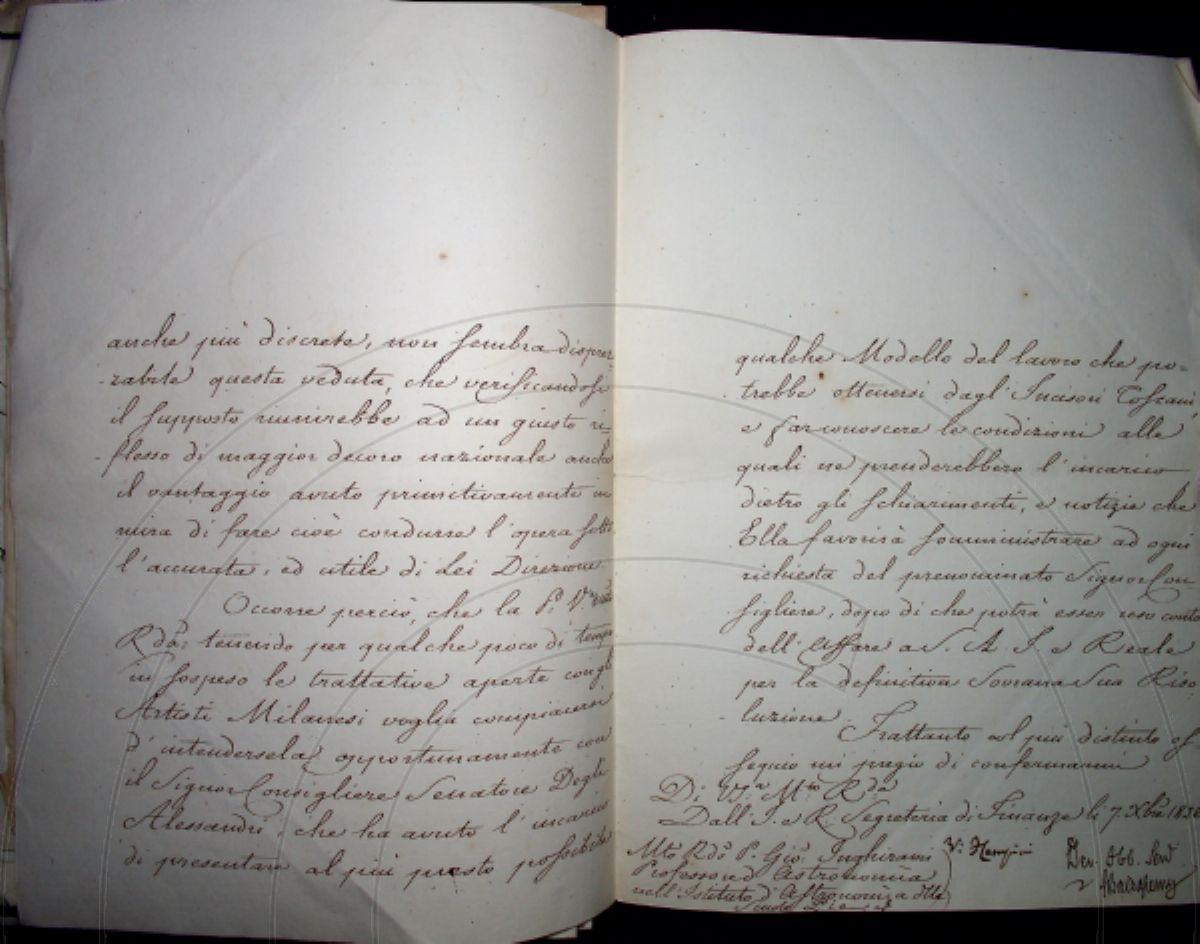 anche più discrete, non sembra dispre-
-zabile questa veduta, che verificandosi
il supposto riunirebbe ad un giusto ri=
-flesso di maggior decoro nazionale anche
il vantaggio avuto primitivamente in
mira di fare cioè condurre l'opera sotto
l'accurata, ed utile di Lei Direzione.
Occorre perciò, che la P. V.
Rda; tenendo per qualche poco di tempo
in sospeso le trattative aperte con gli
Artisti Milanesi voglia compiacersi
d'intendersela opportunamente con
il Signor Consigliere Senatore Degli
Alessandri, che ha avuto l'incarico
di presentare al più presto possibile
qualche Modello del lavoro che po-
trebbe ottenersi dagl'Incisori Toscani
e far conoscere le condizioni alle
quali ne prenderebbero l'incarico
dietro gli schiarimenti, e notizie che
Ella favorirà somministrare ad ogni
richiesta del prenominato Signor Con
sigliere, dopo di che potrà esser reso conto
dell'Affare a S. A. I. e Reale
per la definitiva Sovrana Sua Riso
luzione.
Frattanto col più distinto os
sequio mi pregio di confermarmi
Di V.ra M.to R.da
Dall'I. e R. Segreteria di Finanze li 7. Xbre
Mto Rdo P. Gio. Inghirami
Professore d'Astronomia
nell'Istituto d'Astronomia delle
Scuole
Dev. Obb. Serv